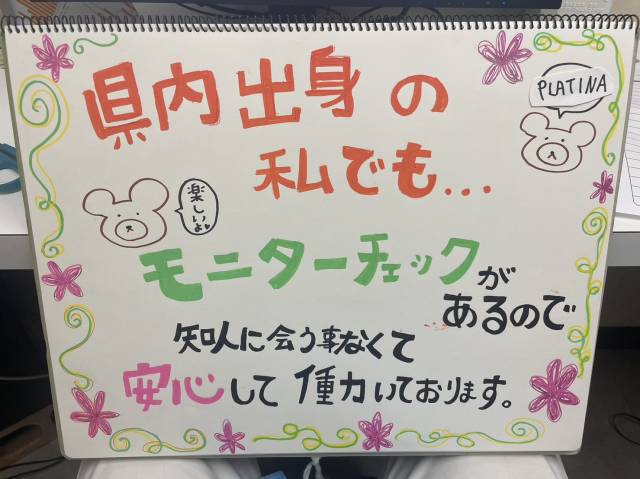 県内出身の
PLATINA
私でも...
楽しいよ♥
モニターチェックが
あるので
知人に会う事なくて
安心して働いております。